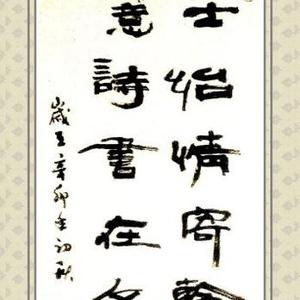 士怡情寄
意詩書在
歲在辛卯年初秋